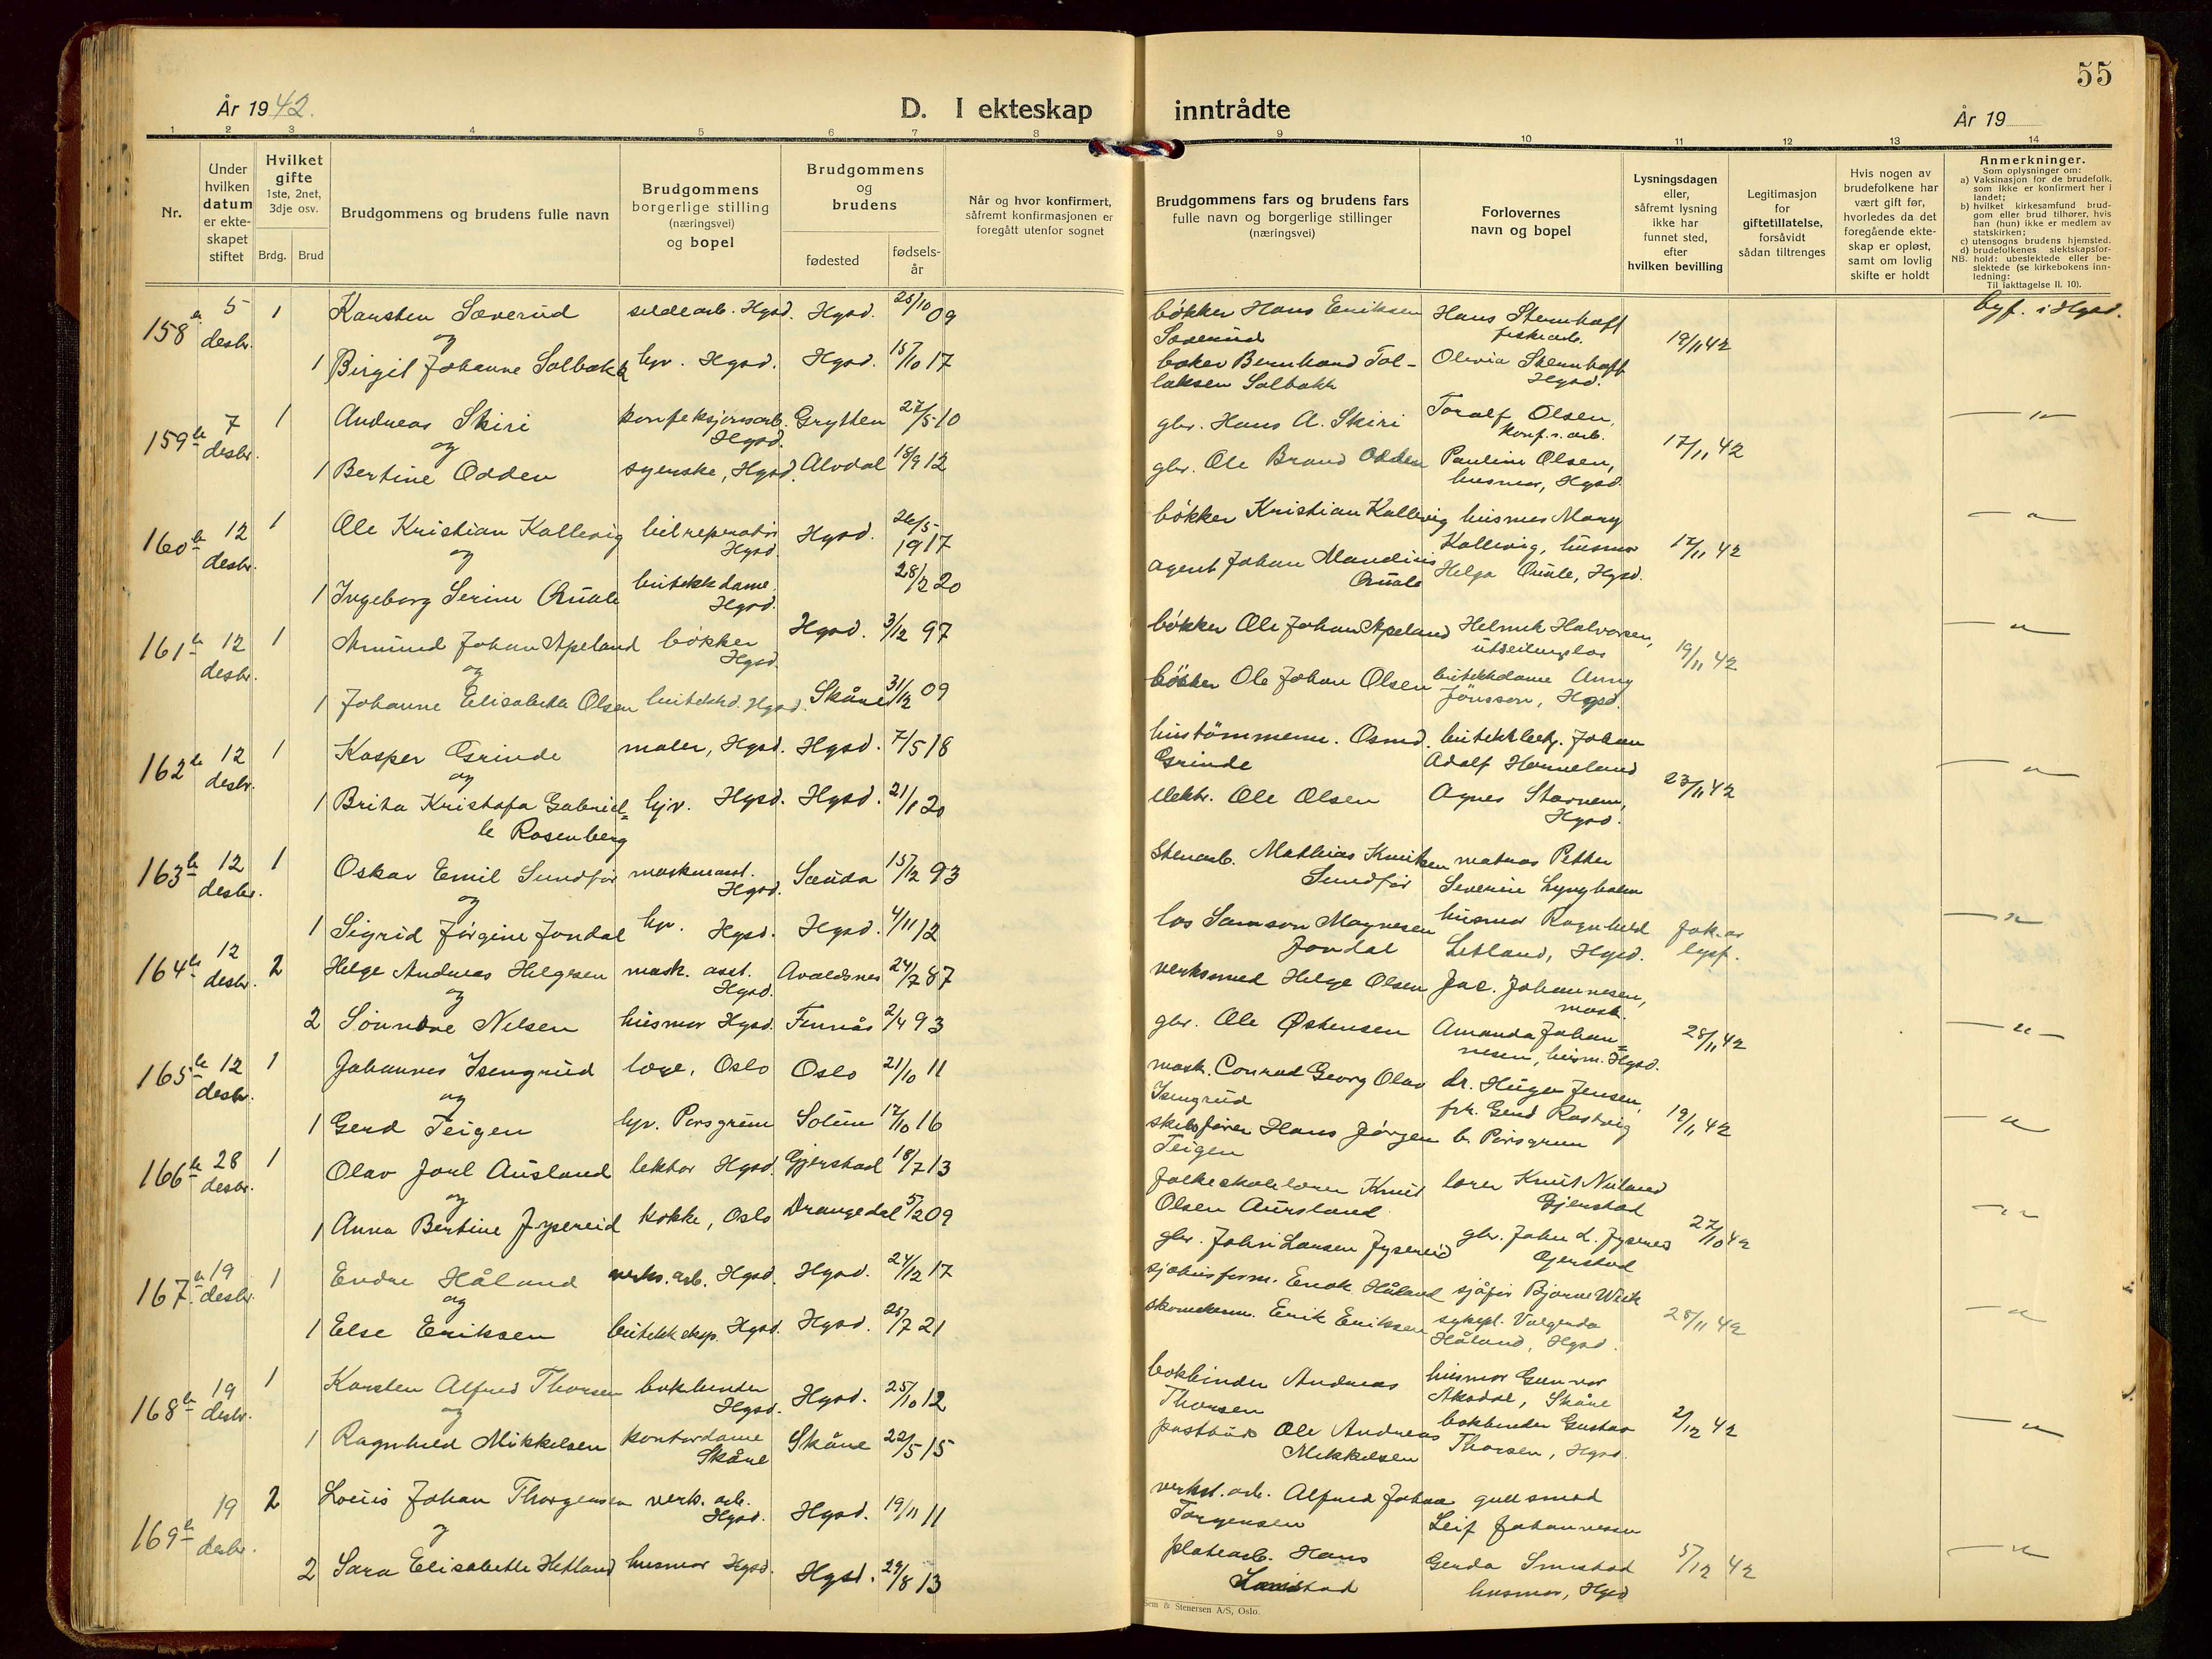 55
År 1942.
D. I ekteskap inntrådte
År 19
1 2 3 4 5 6 7 8 9 10 11 12 13 14
Nr.
Under hvilken datum er ekte-skapet stiftet
Hvilket gifte 1ste, 2net, 3dje osv.
Brdg. Brud
Brudgommens og brudens fulle navn
Brudgommens borgerlige stilling (næringsvei) og bopel
Brudgommens og brudens
fødested
fødsels-år
Når og hvor konfirmert, såfremt konfirmasjonen er foregått utenfor sognet
Brudgommens fars og brudens fars fulle navn og borgerlige stillinger (næringsvei)
Forlovernes navn og bopel
Lysningsdagen eller, såfremt lysning ikke har funnet sted, efter hvilken bevilling
Legitimasjon for giftetillatelse, forsåvidt sådan tiltrenges
Hvis nogen av brudefolkene har vært gift før, hvorledes da det foregående ekte-skap er opløst, samt om lovlig skifte er holdt
Anmerkninger.
Som oplysninger om:
a) Vaksinasjon for de brudefolk, som ikke er konfirmert her i landet;
b) hvilket kirkesamfund brud-gom eller brud tilhører, hvis han (hun) ikke er medlem av statskirken;
c) utensogns brudens hjemsted.
d) brudefolkenes slektskapsfor-
NB. hold: ubeslektede eller be-slektede (se kirkebokens inn-ledning:
Til iakttagelse II. 10).
158 5 desbr. 1 Karsten Sæverud sildearb. Hgsd. Hgsd. 25/10 09 bøkker Hans Eriksen Sæverud Hans Stennhoff fiskearb. 19/11 42 byf. i Hgsd.
og
1 Birgit Johanne Solbakk hjv. Hgsd. Hgsd. 15/10 17 baker Bernhard Tol-laksen Solbakk Olevia Stennhoff Hgsd.
159 7 desbr. 1 Andreas Skiri konfeksjonsarb. Hgsd. Grytten 27/5 10 gbr. Hans A. Skiri Toralf Olsen, konf.s.arb. 17/11 42 — " —
og
1 Bertine Odden syerske, Hgsd. Alvdal 18/9 12 gbr. Ole Brand Odden Pauline Olsen, husmor, Hgsd.
160 12 desbr. 1 Ole Kristian Kallevig bilreparatør Hgsd. Hgsd. 26/5 1917 bøkker Kristian Kallevig husmor Mary Kallevig, husmor 17/11 42 — " —
og
1 Ingeborg Serine Quale butikkdame Hgsd. 28/2 20 agent Johan Mandius Quale Helga Quale, Hgsd.
161 12 desbr. 1 Amund Johan Apeland bøkker Hgsd. Hgsd. 3/12 97 bøkker Ole Johan Apeland Helmik Halvorsen, 19/11 42 — " —
og
1 Johanne Elisabeth Olsen butikkd. Hgsd. Skåne 31/12 09 bøkker Ole Johan Olsen butikkdame Anny Jönsson, Hgsd.
162 12 desbr. 1 Kasper Grinde maler, Hgsd. Hgsd. 7/5 18 hustömmerm. Osmd. Grinde butikkbetj. Johan Adolf Henneland 23/11 42 — " —
og
1 Brita Kristofa Gabriel=le Rosenberg hjv. Hgsd. Hgsd. 21/1 20 elektr. Ole Olsen Agnes Hgsd.
163 12 desbr. 1 Oskar Emil Sundför maskinasst. Hgsd. Sauda 15/12 93 stenarb. Mathias Knutsen Sundför matros Petter Severin Lyngholm
og
1 Sigrid Jørgine Jondal hjv. Hgsd. Hgsd. 4/11 12 los Samson Magnesen Jondal husmor Ragnhild Hgsd. lysf. — " —
164 12 desbr. 2 Helge Andreas Helgesen mask. asst. Hgsd. Avaldsnes 24/7 87 verksmed Helge Olsen Jac. Johannesen, mask. 28/11 42 — " —
og
2 Sönnøve Nilsen husmor Hgsd. Finnås 2/4 93 gbr. Ole Østensen Amanda Johan=nesen, husm. Hgsd.
165 12 desbr. 1 Johannes Isengrud læge, Oslo Oslo 21/10 11 mask. Conrad Georg Olav Isengrud dr. Hugo Jensen, 19/11 42 — " —
og
1 Gerd Teigen hjv. Porsgrun Solum 17/10 16 skibsfører Hans Jørgen Teigen frk. Gerd Rostvig b. Porsgrun
166 28 desbr. 1 Olav Joel Ausland lektor Hgsd. Gjerstad 18/7 13 folkeskolelærer Knud Olsen Aursland lærer Knut Nuland Gjerstad 27/10 42 — " —
og
1 Anna Bertine Jysereid kokke, Oslo Drangedal 5/2 09 gbr. John Larsen Jysereid gbr. John L. Gjerstad
167 19 desbr. 1 Endre Håland verks.arb. Hgsd. Hgsd. 24/12 17 sjøhusform. Enok Håland sjåfør Bjarne Wiik 28/11 42 — " —
og
1 Else Eriksen butikkeksp. Hgsd. Hgsd. 28/7 21 skomakerm. Erik Eriksen sykepl. Valgerda Håland, Hgsd.
168 19 desbr. 1 Karsten Alfred Thorsen bokbinder Hgsd. Hgsd. 25/10 12 bokbinder Andreas Thorsen husmor Gunvor Aksdal, Skåne 2/12 42 — " —
og
1 Ragnhild Mikkelsen kontordame Skåne Skåne 22/5 15 postbud Ole Andreas Mikkelsen bokbinder Gustav Thorsen, Hgsd.
169 19 desbr. 2 Louis Johan Thorgensen verk. arb. Hgsd. Hgsd. 19/11 11 verkst. arb. Alfred Johan Torgensen gullsmed Leif Johannessen 5/12 42 — " —
og
2 Sara Elisabeth Hetland husmor Hgsd. Hgsd. 29/8 13 platearb. Hans Gerda Smistad husmor, Hgsd
Sem & Stenersen A/S, Oslo.